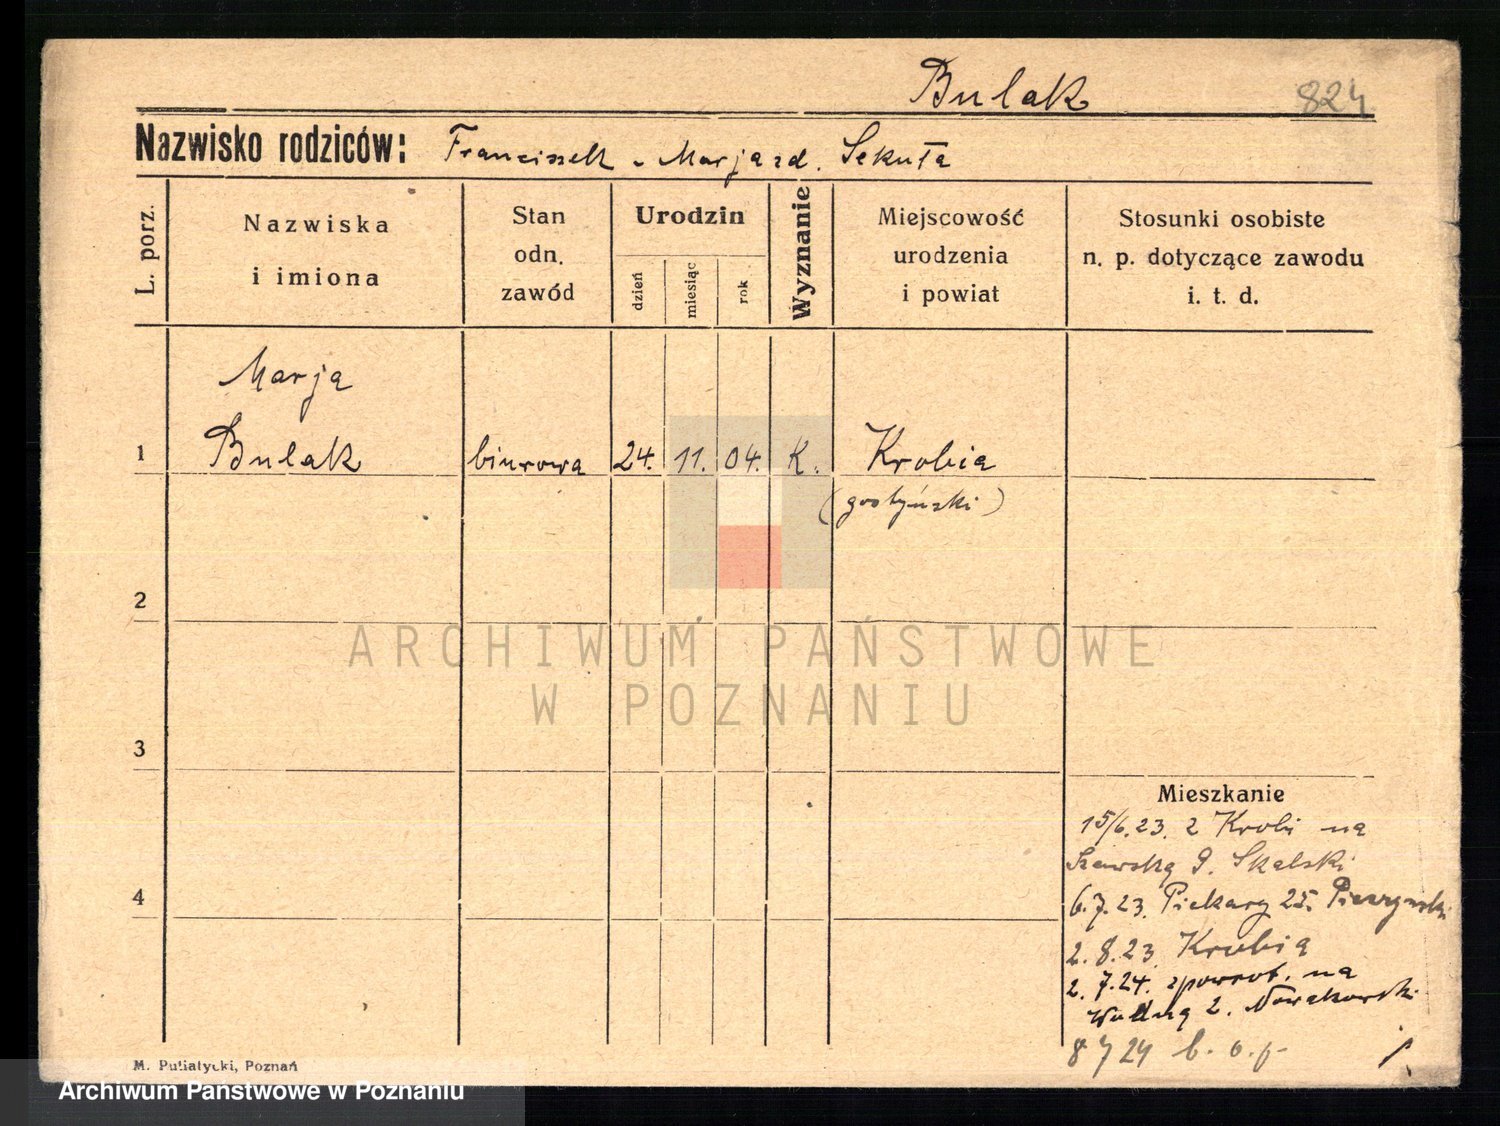 Bulak
824
Nazwisko rodziców: Franciszek - Marja zd. Sekuła
L. porz.
Nazwiska
i imiona
Stan
odn.
zawód
Urodzin
dzień
miesiąc
rok
Wyznanie
Miejscowość
urodzenia
i powiat
Stosunki osobiste
n. p. dotyczące zawodu
i. t. d.
Marja
1 Bulak biurowa 24. 11. 04. K. Krobia
(gostyński)
2
ARCHIWUM PAŃSTWOWE
W POZNANIU
3
Mieszkanie
15/6.23. z Krobi na
Szewską 9. Skalski
4
6.7.23. Piekary 25.
2.8.23. Krobia
2.7.24. zpowrot. na
Wodną 2. Nowakowski
8 7 24 b. o. p.
M. Putiatycki, Poznań
Archiwum Państwowe w Poznaniu